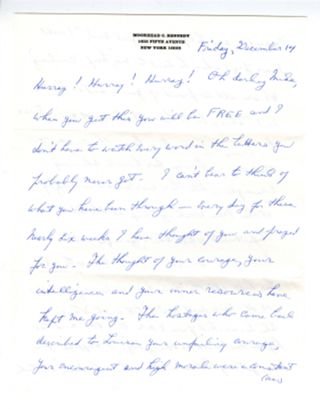 MOORHEAD C. KENNEDY
1030 FIFTH AVENUE
NEW YORK 10028
Friday, December 14
Hurray! Hurray! Hurray! Oh darling Mike,
when you get this you will be FREE and I
don't have to watch every word in the letters you
probably never got. I can't bear to think of
what you have been through — every day for these
nearly six weeks I have thought of you and prayed
for you. The thought of your courage, your
intelligence and your inner resources have
kept me going. The hostages who came back
described to Louisa your unfailing courage,
your encouragement and high morale were a constant
(over)